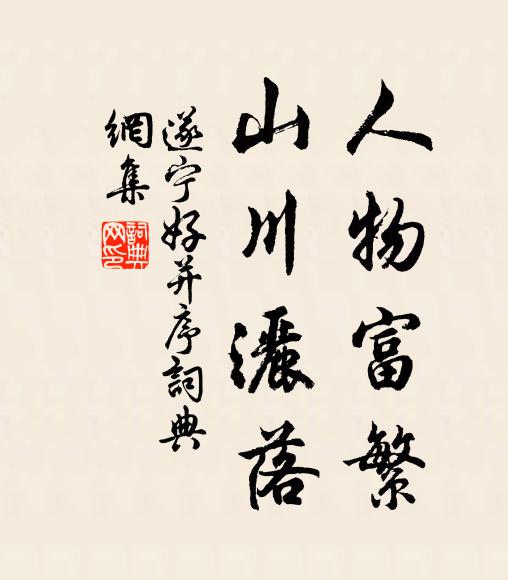 人物富繁
山川灑落
遂宁好并序詞典
網集
詞典
网印